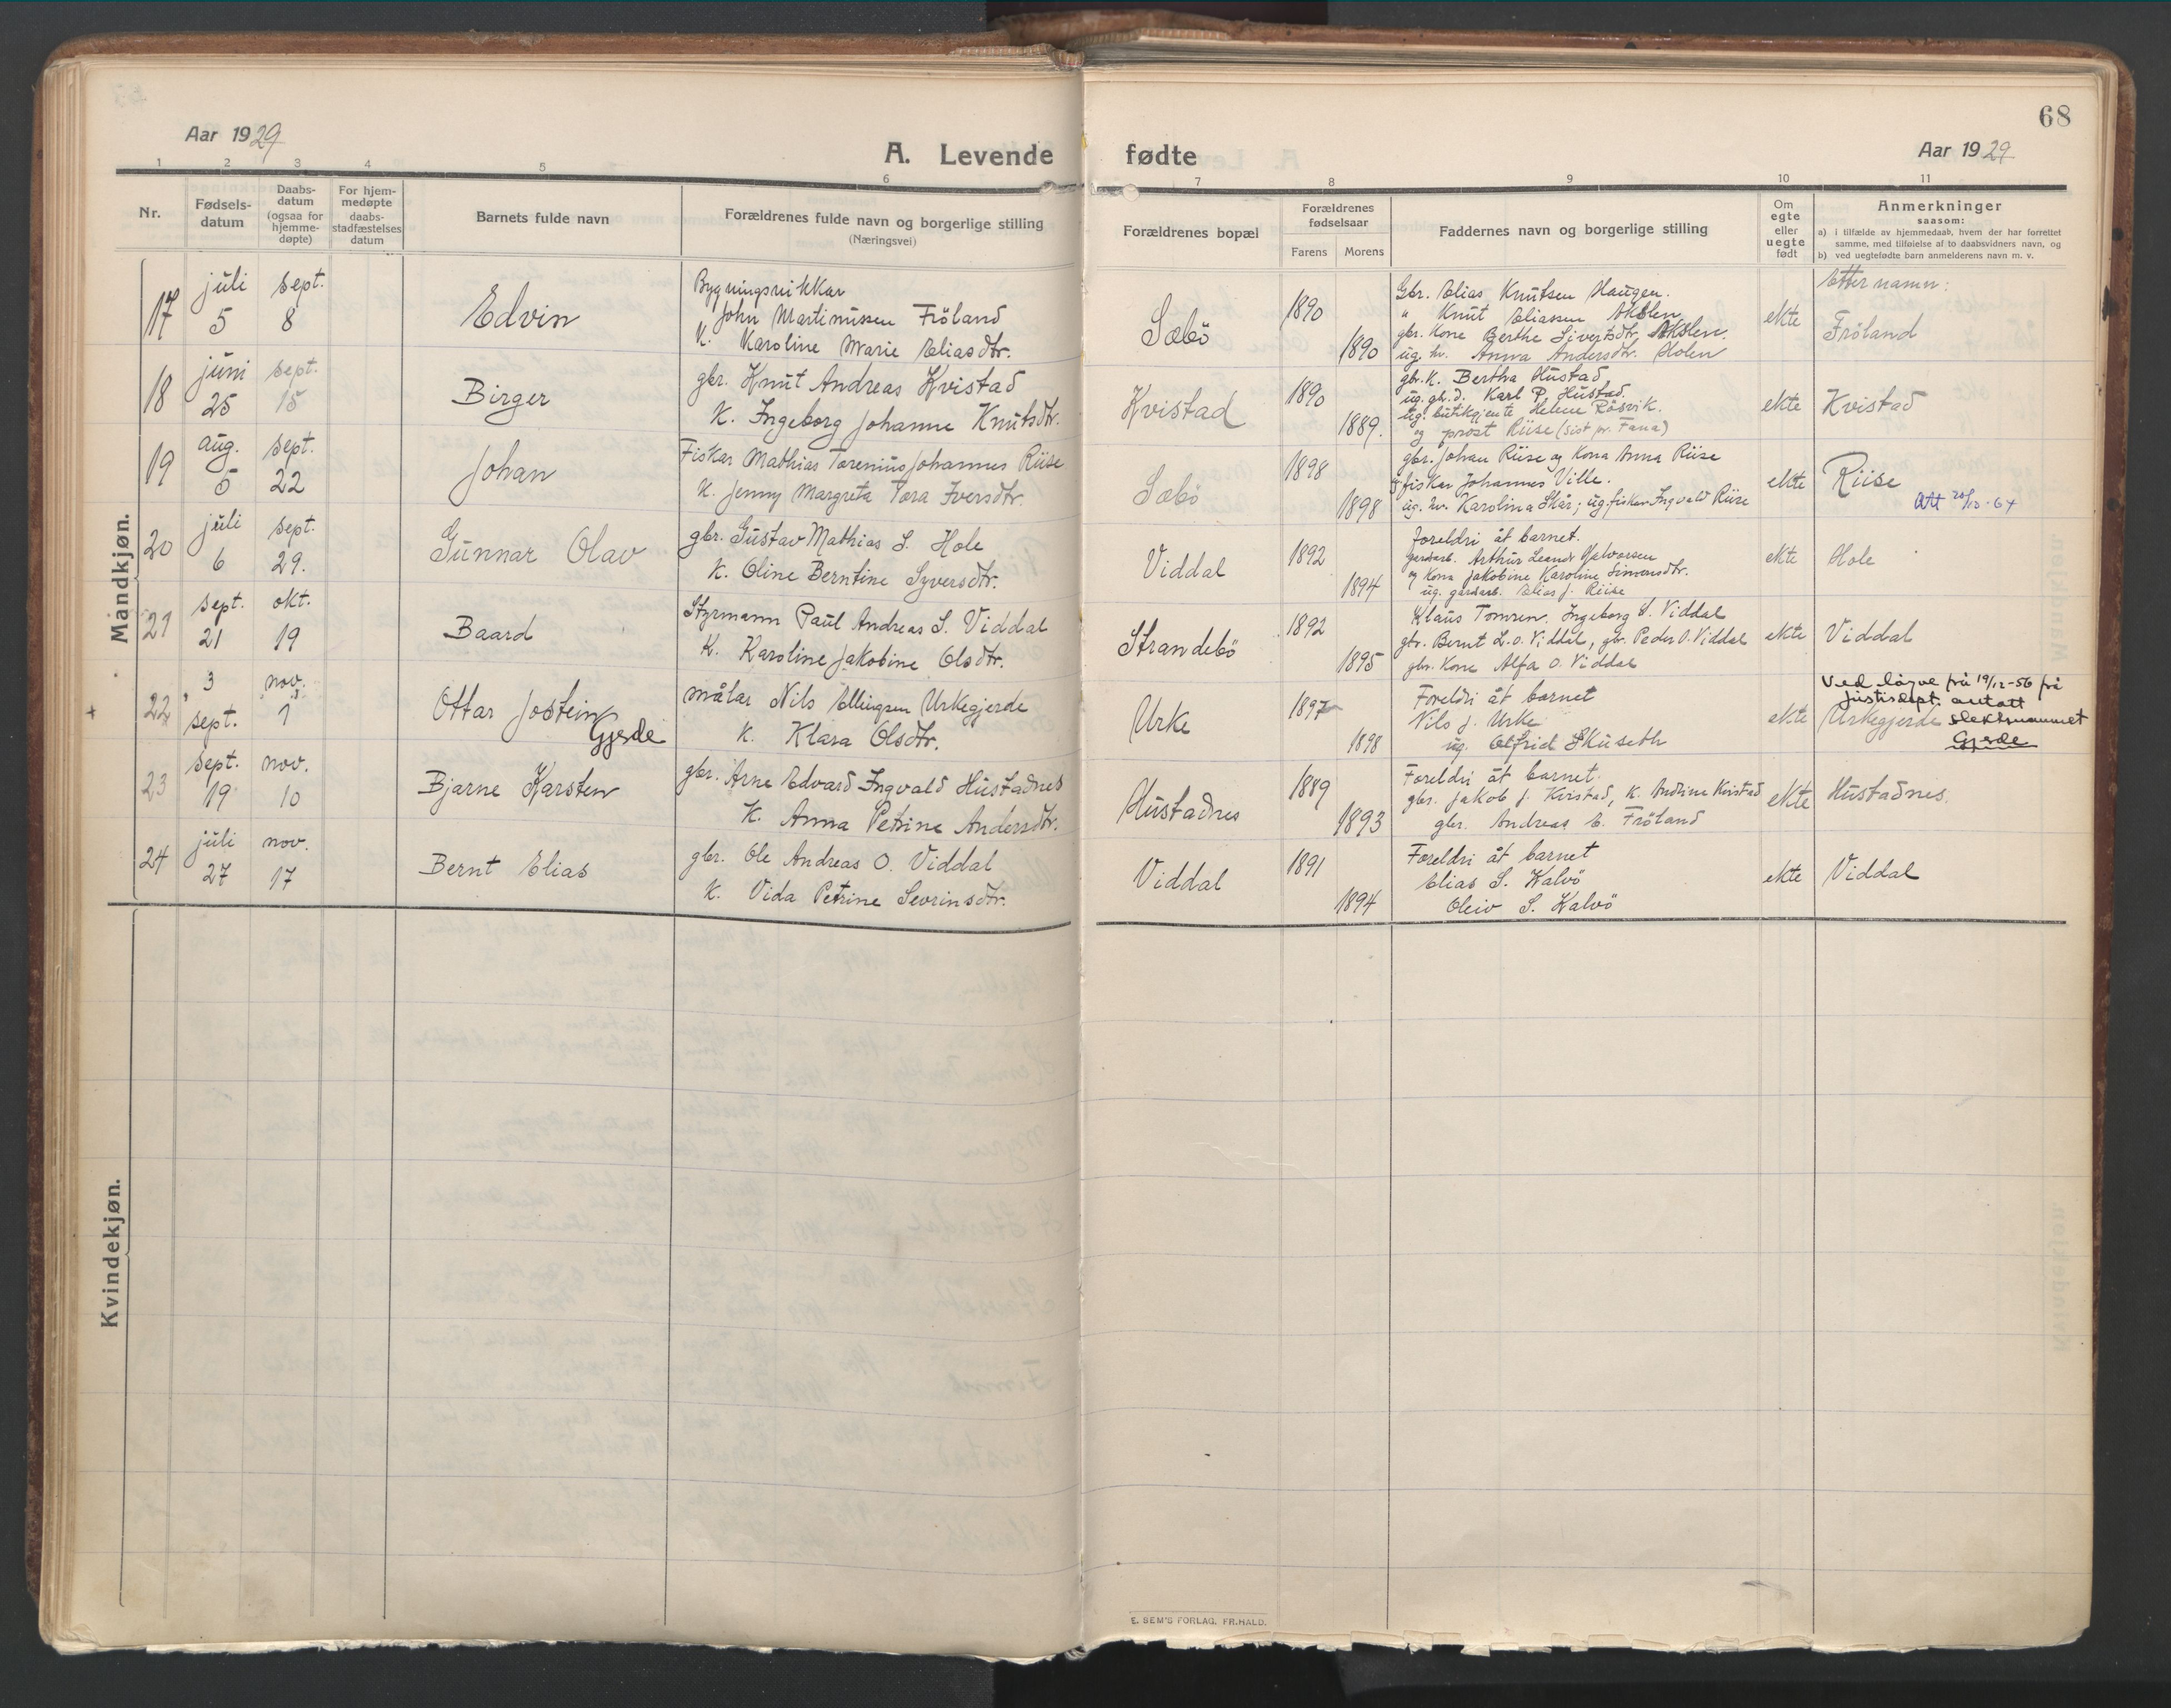 68
Aar 1929
A. Levende fødte
Aar 1929
1 2 3 4 5 6 7 8 9 10 11
Nr.
Fødsels-
datum
Daabs-
datum
(ogsaa for
hjemme-
døpte)
For hjem-
medøpte
daabs-
stadfæstelses
datum
Barnets fulde navn
Forældrenes fulde navn og borgerlige stilling
(Næringsvei)
Forældrenes bopæl
Forældrenes
fødselsaar
Farens Morens
Faddernes navn og borgerlige stilling
Om
egte
eller
uegte
født
Anmerkninger
saasom:
a) i tilfælde av hjemmedaab, hvem der har forrettet
samme, med tilføielse af to daabsvidners navn, og
b) ved uegtefødte barn anmelderens navn m. v.
Mandkjøn.
17
juli
5
sept.
8
Edvin
Bygningsnikkar
John Martinussen Fröland
K. Karoline Marie Eliasdtr.
Sæbö
1890
1890
Gbr. Elias Knutsen Haugen.
" Knut Eliassen Akslen
gbr. Kone Berthe Sivertsdtr. Akslen.
ug. kv. Anna Andersdtr. Holen
ekte
Etternamn:
Fröland
18
juni
25
sept.
15
Birger
gbr. Knut Andreas Kvistad
K. Ingeborg Johanne Knutsdtr.
Kvistad
1890
1889.
gbr. K. Bertha Hustad
ug. gbr. d. Karl P. Hustad.
ug. butikgjente Helene Råsvik.
og prost Riise (sist pr. Fana)
ekte
Kvistad
19
aug.
5
sept.
22
Johan
Fiskar Mathias Torenius Johannes Riise
K. Jenny Margreta Tora Iversdtr.
Sæbö
1898
1898
gbr. Johan Riise og Kona Anna Riise
fiskar Johannes Ville.
ug. kv. Karolina Skår; ug. fiskar Ingvald Riise
ekte
Riise
Att 20/10-64
20
juli
6
sept.
29.
Gunnar Olav
gbr. Gustav Mathias S. Hole
K. Oline Berntine Syversdtr.
Viddal
1892
1894
Foreldri åt barnet.
gardarb. Arthur Leandr Halvorsen
og Kona Jakobine Karoline Simonsdtr.
ug. gardarb. Elias J. Riise
ekte
Hole
21
sept.
21
okt.
19
Baard
Styrmann Paul Andreas S. Viddal
K. Karoline Jakobine Olsdtr.
Strandebö
1892
1895
Klaus Tomren. Ingeborg S. Viddal
gbr. Bernt L. O. Viddal, gbr. Peder O. Viddal
gbr. Kone Alfa O. Viddal
ekte
Viddal
+
22
3
sept.
nov.
1
Ottar Jostein
Gjerde
målar Nils Ellingsen Urkegjerde
K. Klara Olsdtr.
Urke
1897
1898
Foreldri åt barnet
Nils J. Urke
ug. Olfrid Skuseth
ekte
Ved löyve frå 19/12-56 frå
justisdept. antatt
Urkegjerde slektsnamnet
Gjerde
23
sept.
19
nov.
10
Bjarne Karsten
gbr. Arne Edvard Ingvald Hustadnes
K. Anna Petrine Andersdtr.
Hustadnes
1889
1893
Foreldri åt barnet.
gbr. Jakob J. Kvistad, K. Andrine Kvistad
gbr. Andreas E. Fröland
ekte
Hustadnes.
24
juli
27
nov.
17
Bernt Elias
gbr. Ole Andreas O. Viddal
K. Vida Petrine Sevrinsdtr.
Viddal
1891
1894
Foreldri åt barnet
Elias S. Kalvö
Oleiv S. Kalvö
ekte
Viddal
Kvindekjøn.
E. SEM'S FORLAG, FR.HALD.